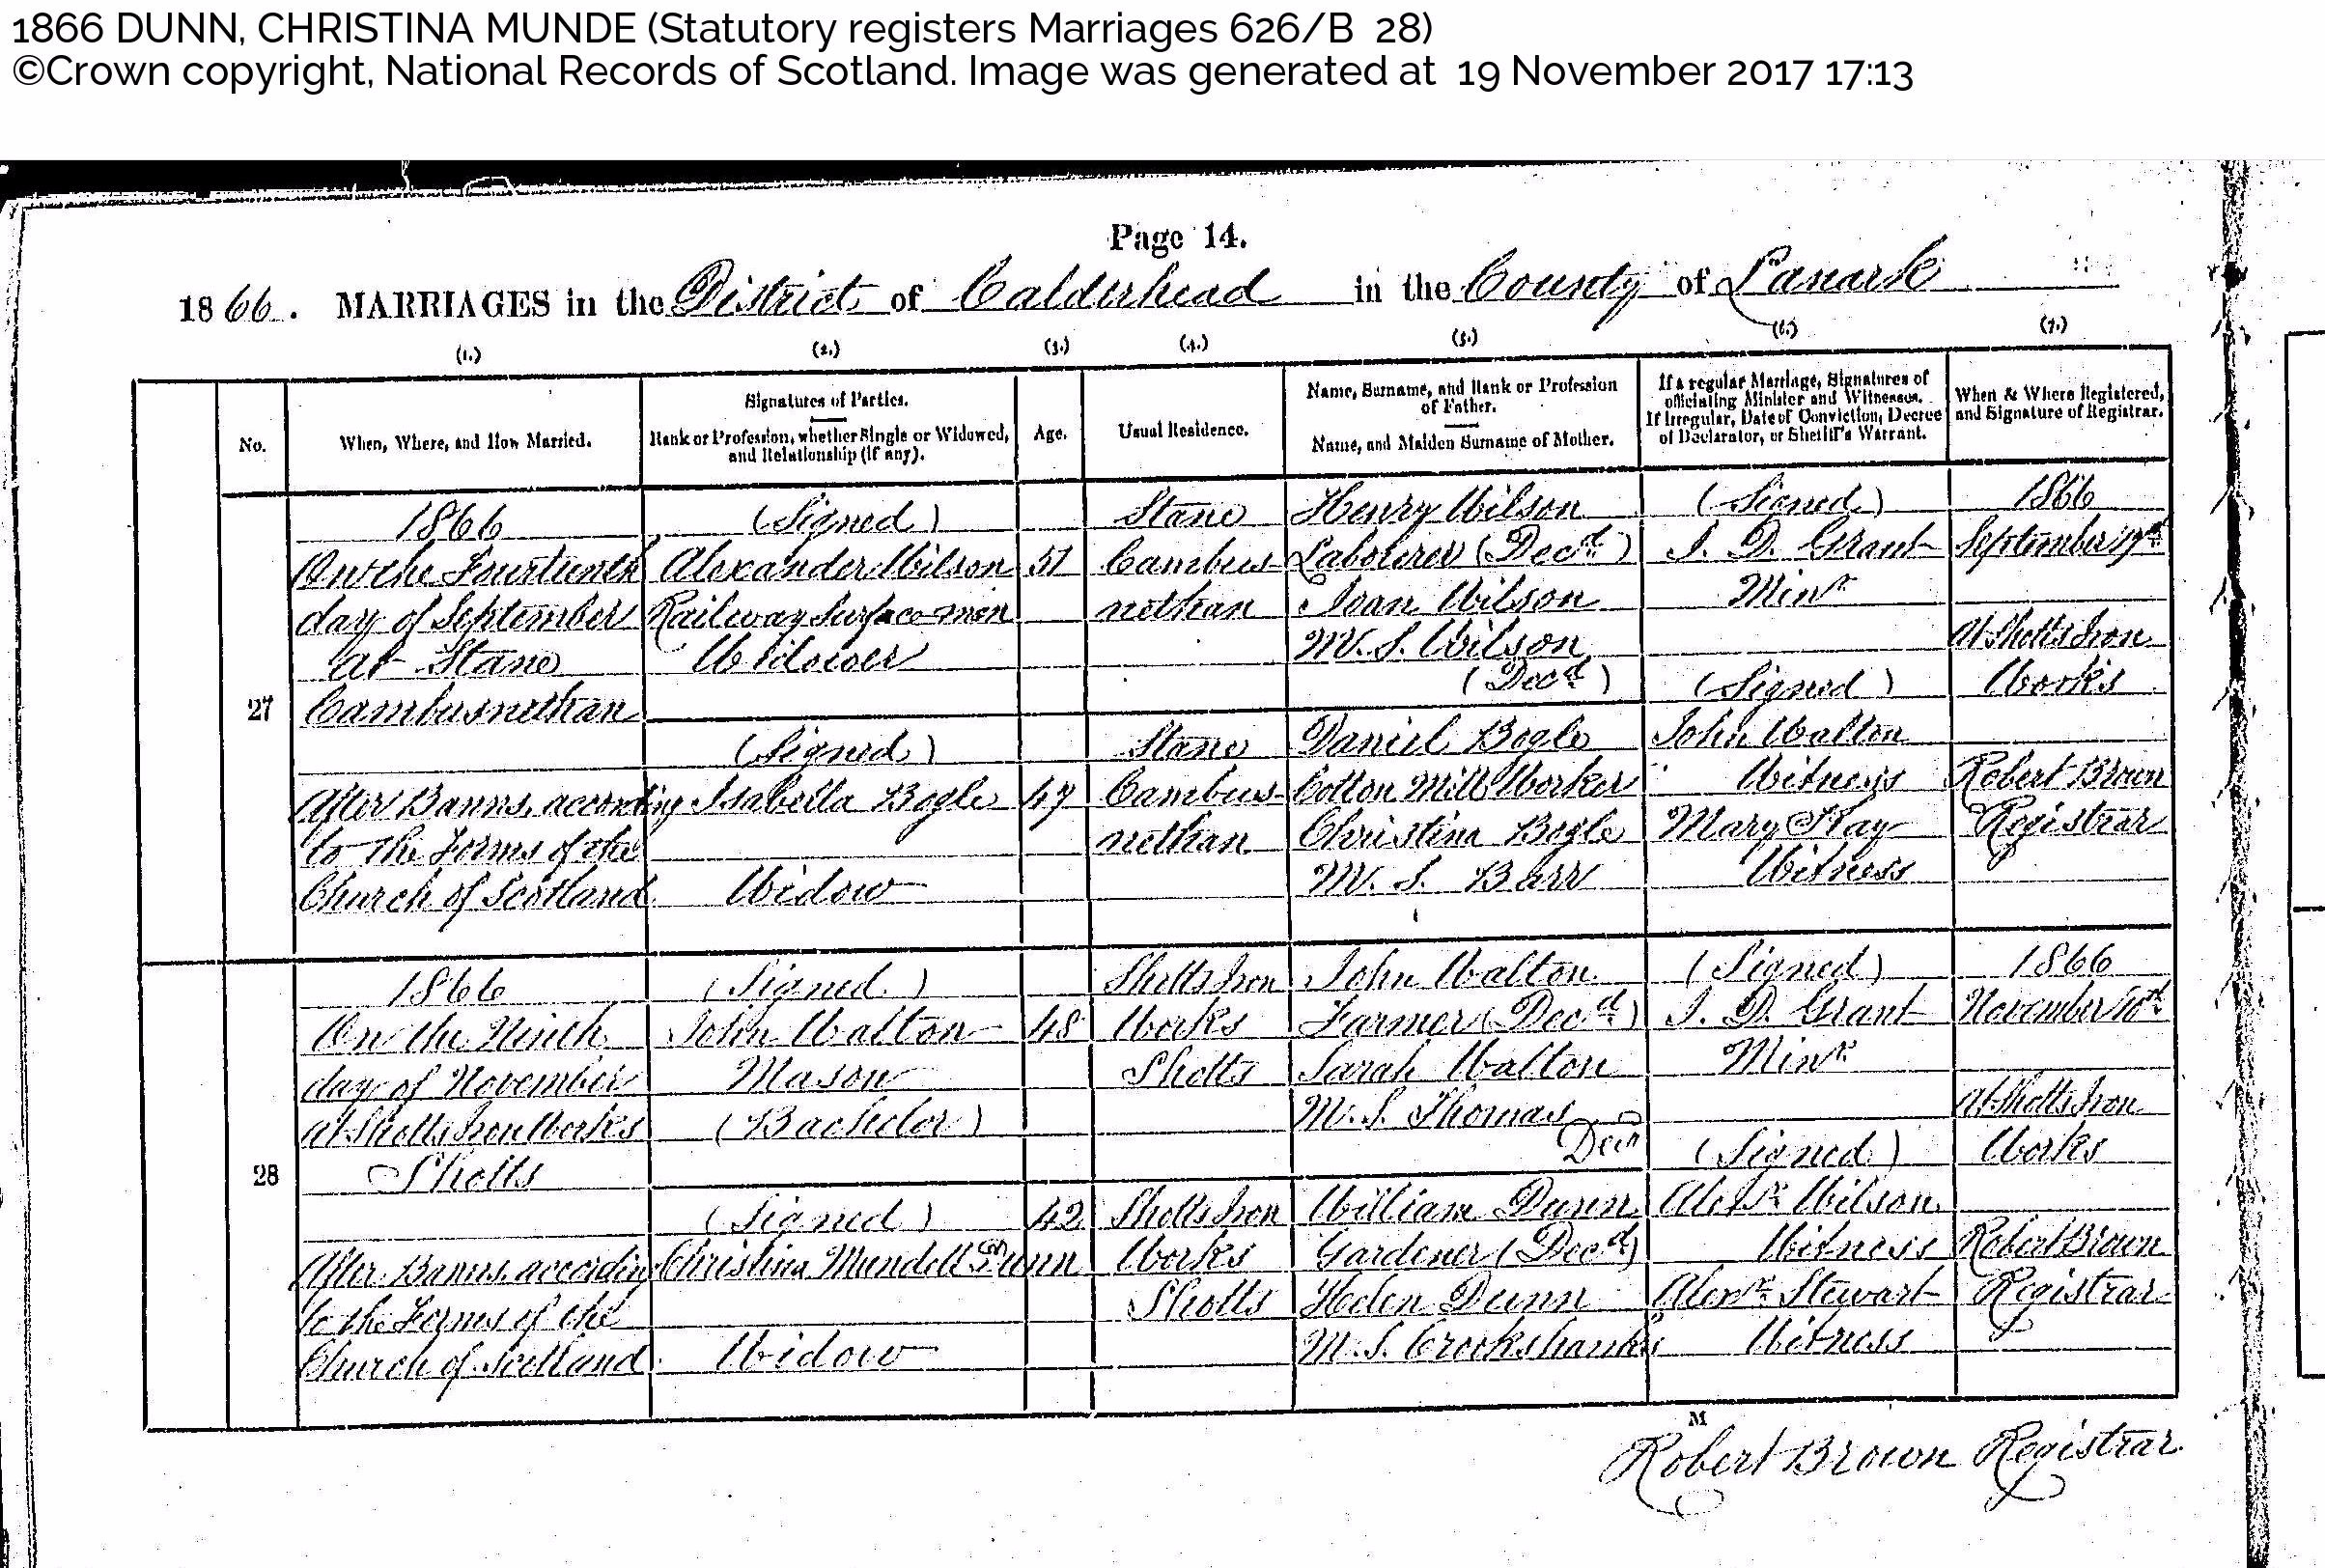 1866 DUNN, CHRISTINA MUNDE (Statutory registers Marriages 626/B 28)
©Crown copyright, National Records of Scotland. Image was generated at 19 November 2017 17:13
Page 14.
1866. MARRIAGES in the District of Calderhead in the County of Lanark
(1.) (2.) (3.) (4.) (5.) (6.) (7.)
No.
When, Where, and How Married.
Signatures of Parties.
Rank or Profession, whether Single or Widowed,
and Relationship (if any).
Age.
Usual Residence.
Name, Surname, and Rank or Profession
of Father.
Name, and Maiden Surname of Mother.
If a regular Marriage, Signatures of
officiating Minister and Witnesses.
If Irregular, Date of Conviction, Decree
of Declarator, or Sheriff's Warrant.
When & Where Registered,
and Signature of Registrar.
27
1866
On the Fourteenth
day of September
at Stane
Cambusnethan
After Banns, according
to the Forms of the
Church of Scotland
(Signed)
Alexander Wilson
Railway Surface-man
Widower
(Signed)
Isabella Bogle
Widow
51
47
Stane
Cambus-
nethan
Stane
Cambus-
nethan
Henry Wilson
Labourer (Decd)
Joan Wilson
M.S. Wilson
(Decd)
Daniel Bogle
Cotton Mill Worker
Christina Bogle
M.S. Barr
(Signed)
J. D. Grant
Minr
(Signed)
John Walton
Witness
Mary Kay
Witness
1866
September 17th
At Shotts Iron
Works
Robert Brown
Registrar
28
1866
On the Ninth
day of November
at Shotts Iron Works
Shotts
After Banns, according
to the Forms of the
Church of Scotland
(Signed)
John Walton
Mason
(Bachelor)
(Signed)
Christina Mundell Dunn
Widow
48
42
Shotts Iron
Works
Shotts
Shotts Iron
Works
Shotts
John Walton
Farmer (Decd)
Sarah Walton
M.S. Thomas
Decd
William Dunn
Gardener (Decd)
Helen Dunn
M.S. Crookshanks
(Signed)
J. D. Grant
Minr
(Signed)
Alexr Wilson
Witness
Alexr Stewart
Witness
1866
November 10th
At Shotts Iron
Works
Robert Brown
Registrar
M
Robert Brown Registrar